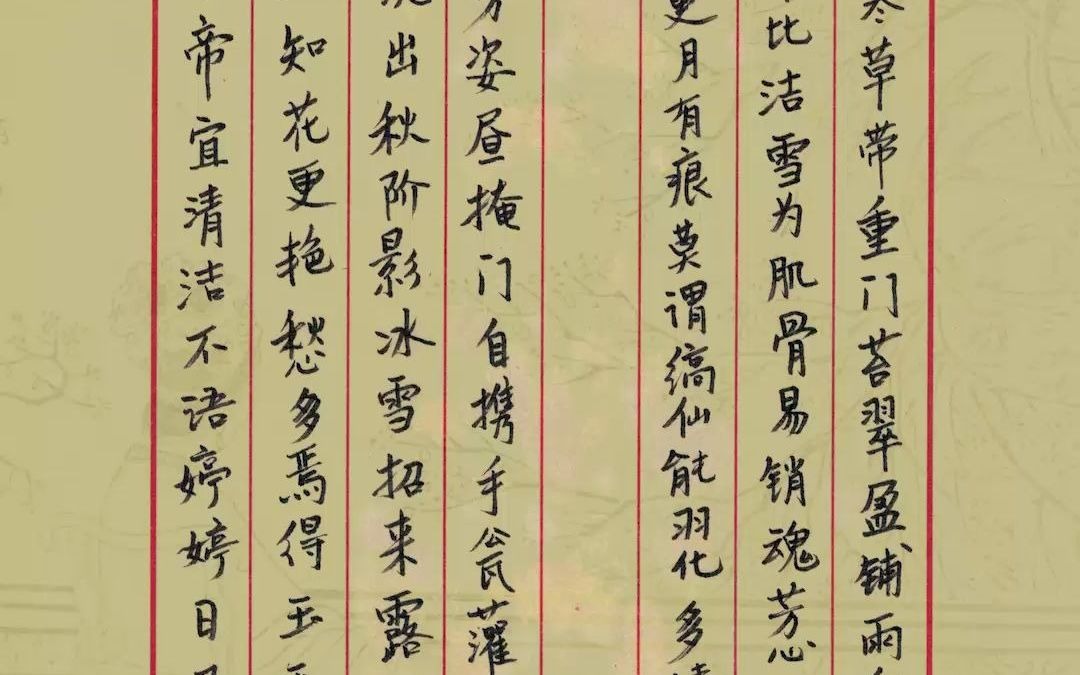 寒草带重门苔翠盈铺雨
比洁雪为肌骨易销魂芳心
更月有痕莫谓缟仙能羽化多
姿昼掩门自携手瓮灌
出秋阶影冰雪招来露
知花更艳愁多焉得玉
帝宜清洁不语婷婷日